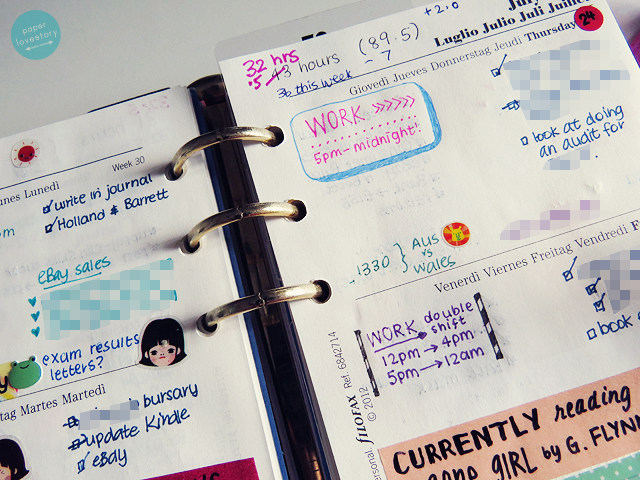 paper
lovestory
Lunedì
Week 30
write in journal
Holland & Barrett
eBay sales
exam results
letters?
Martes Martedì
bursary
update Kindle
eBay
+2.0
32 hrs
.5 43 hours
(89.5)
- 7
36 this week
Luglio Julio Juli
24
Giovedì Jueves Donnerstag Jeudi Thursday
WORK >>>>>>
5pm - midnight!
look at doing
an audit for
1330 } Aus
vs
Wales
Venerdì Viernes Freitag Vendredi F
WORK double
shift
12pm → 4pm
5pm → 12am
book a
FILOFAX Ref. 6842714
© 2012
CURRENTLY reading
gone girl by G. FLYNN